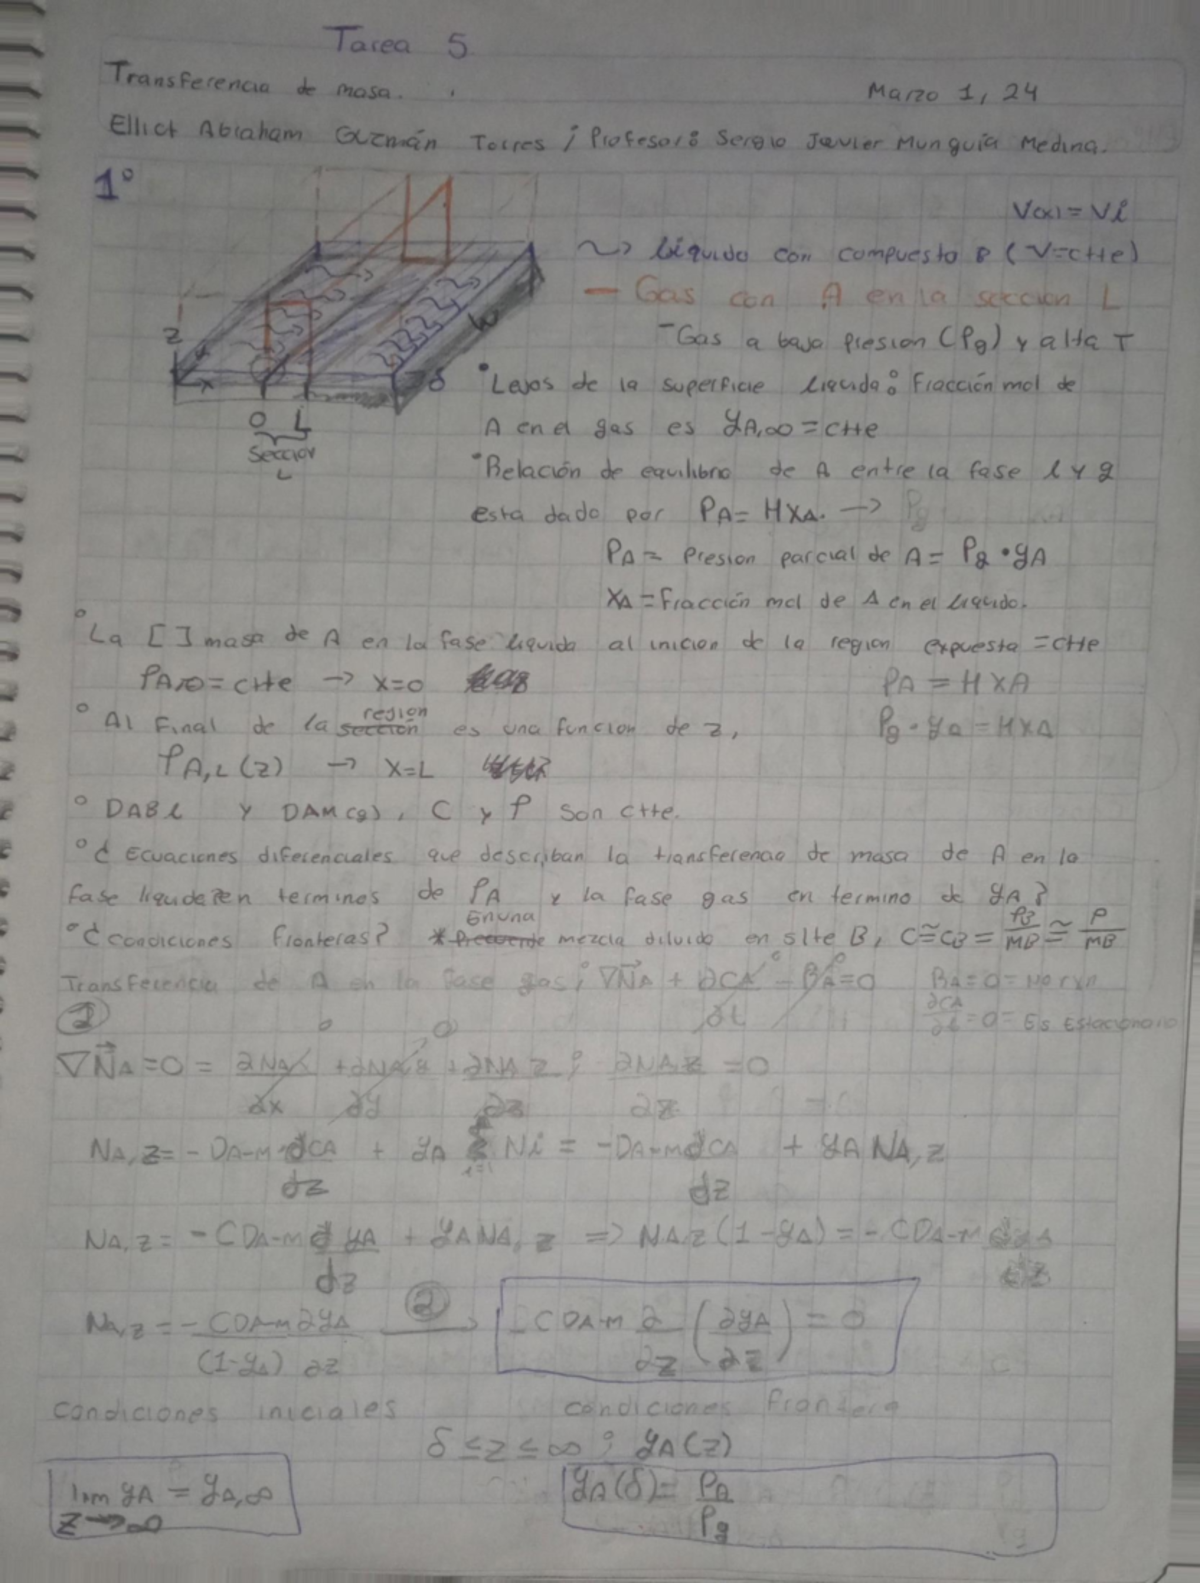 Tarea 5
Transferencia de masa.
Marzo 1, 24
Elliot Abraham Guzmán Torres ; Profesor: Sergio Javier Munguía Medina.
1°
V(x) = Vi
~> Liquido con compuesto B (V=ctte)
— Gas con A en la seccion L
- Gas a baja presion (Pg) y alta T
z
x
δ
W
0 L
Seccion
L
• Lejos de la superficie liquida: Fracción mol de
A en el gas es yA,∞ = ctte
• Relación de equilibrio de A entre la fase l y g
esta dado por PA = HXA. -> Pg
PA = Presion parcial de A = Pg • yA
XA = Fracción mol de A en el liquido.
° La [ ] masa de A en la fase liquida al inicio de la region expuesta = ctte
ρA,0 = ctte -> x=0
PA = HXA
° Al Final de la region es una funcion de z,
Pg · yA = HXA
ρA,L (z) -> x=L
° DABl y DAM(g), C y ρ son ctte.
° ¿ Ecuaciones diferenciales que describan la transferencia de masa de A en la
fase liquida en terminos de ρA y la fase gas en termino de yA?
° ¿Condiciones fronteras? * En una mezcla diluida en slte B, C≅CB = ρB/MB ≅ ρ/MB
Transferencia de A en la fase gas; ∇N⃗A + ∂CA/∂t - RA = 0
RA = 0 = No rxn
∂CA/∂t = 0 = Es Estacionario
①
∇N⃗A = 0 = ∂NAx/∂x + ∂NAy/∂y + ∂NAz/∂z ; ∂NAz/∂z = 0
NA,z = -DA-M dCA/dz + yA Σ Ni = -DA-M dCA/dz + yA NA,z
NA,z = -CDA-M d yA/dz + yA NA,z => NAz (1-yA) = -CDA-M dyA/dz
NA,z = -CDA-M ∂yA/(1-yA) ∂z ② -> -CDA-M ∂/∂z (∂yA/∂z) = 0
Condiciones iniciales
Condiciones frontera
δ ≤ z ≤ ∞ ; yA(z)
lim yA = yA,∞
z -> ∞
yA(δ) = PA/Pg